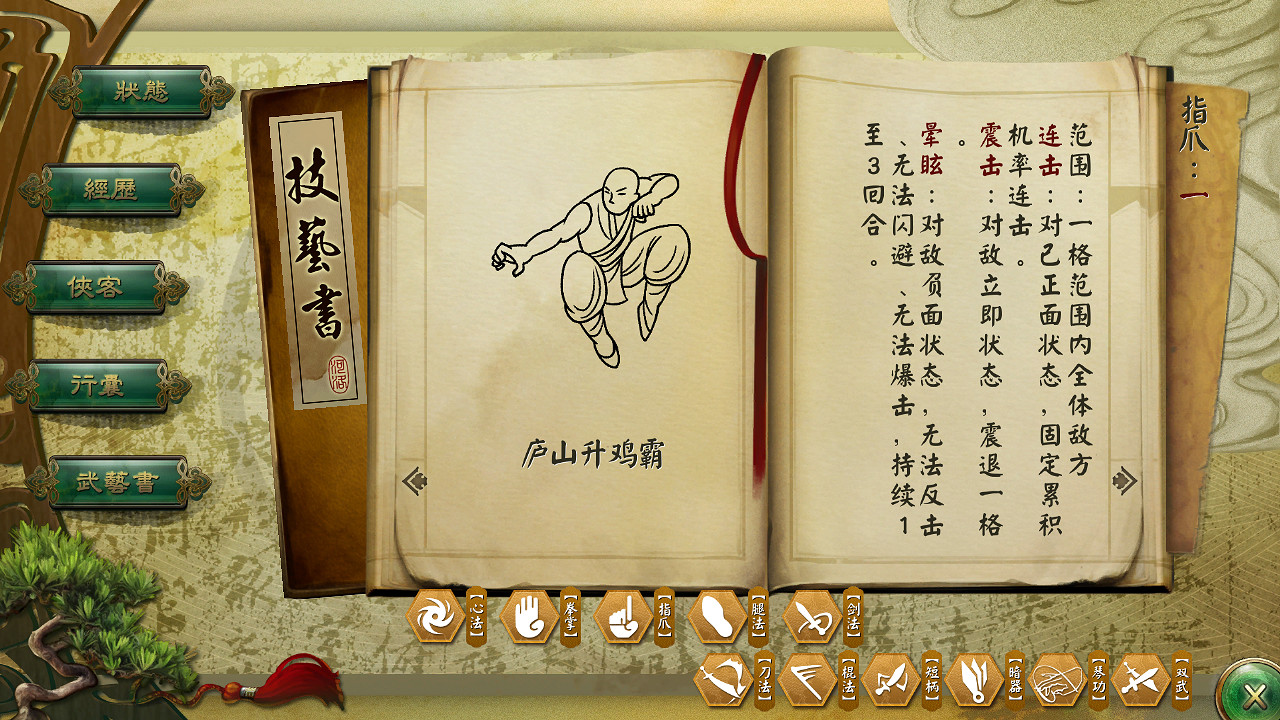 狀態
經歷
俠客
行囊
武藝書
技藝書
河洛
庐山升鸡霸
指爪：一
范围：一格范围内全体敌方
连击：对己正面状态，固定累积
机率连击。
震击：对敌立即状态，震退一格
。
晕眩：对敌负面状态，无法反击
、无法闪避、无法爆击，持续1
至3回合。
【心法】
【拳掌】
【指爪】
【腿法】
【剑法】
【刀法】
【棍法】
【短柄】
【暗器】
【琴功】
【双武】